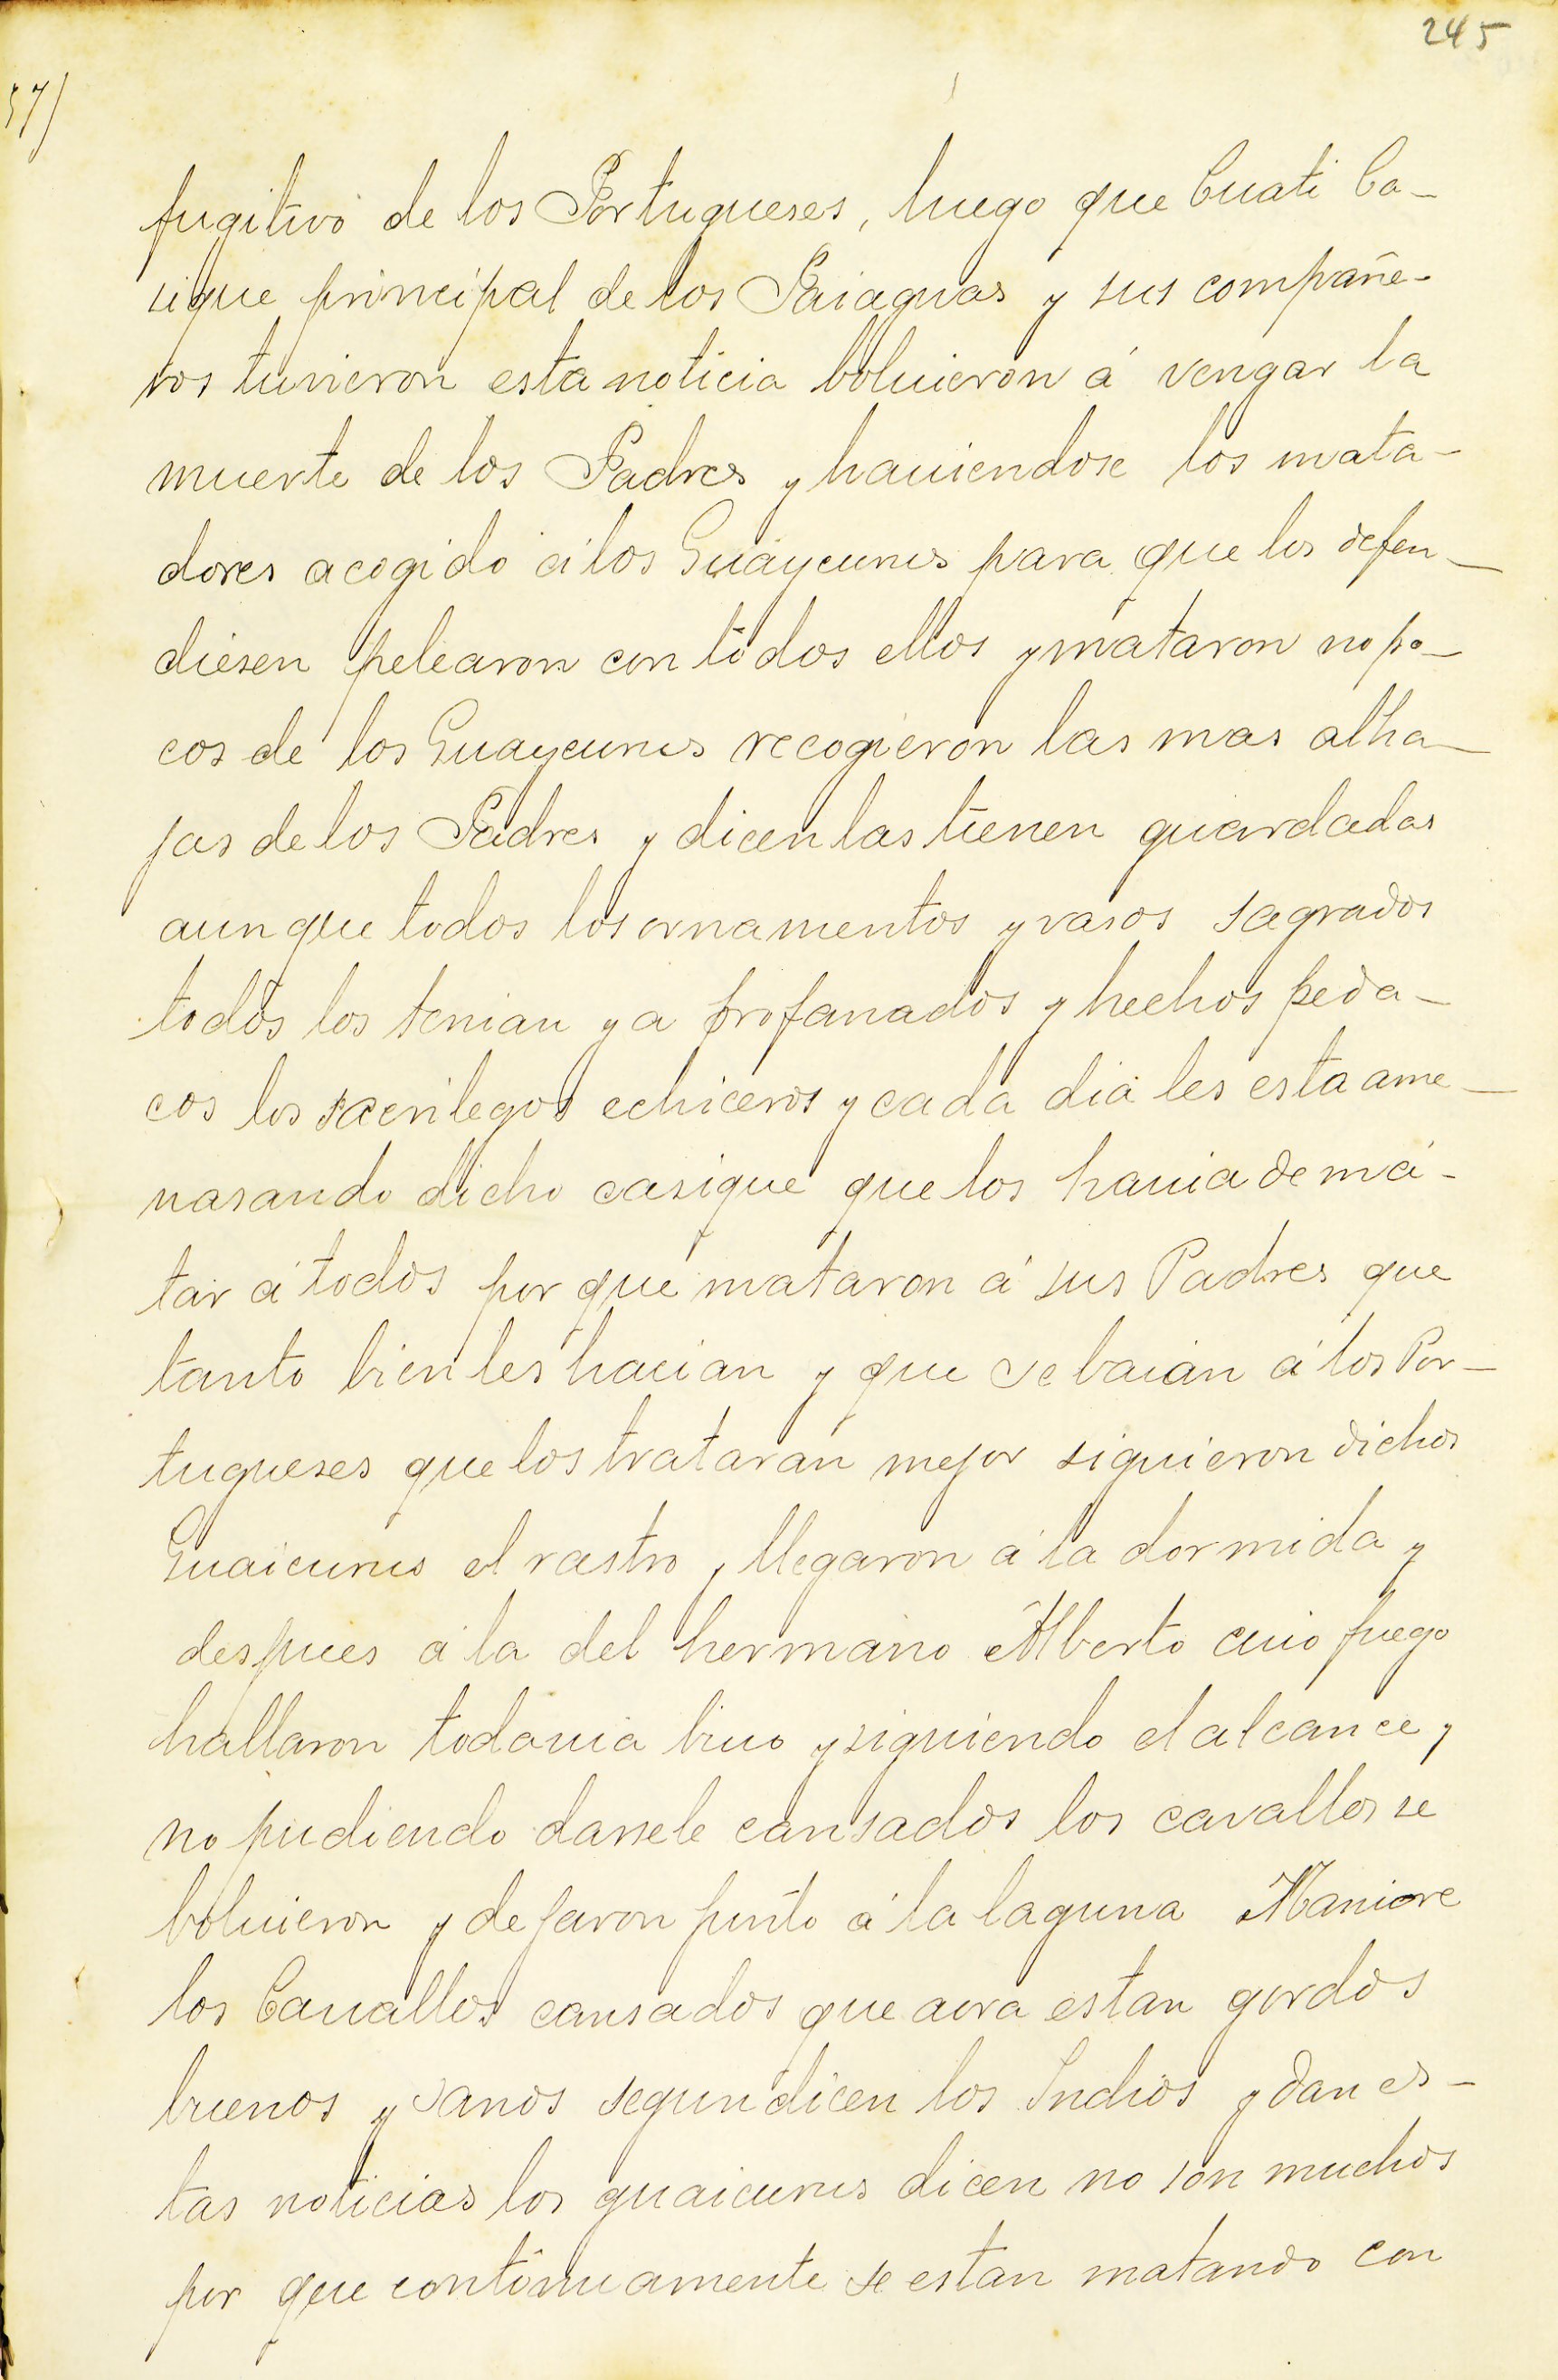 245
57/
fugitivo de los Portugueses, luego que Cuati Ca-
sique principal de los Paiaguas y sus compañe-
ros tuvieron esta noticia boluieron á vengar la
muerte de los Padres y hauiendose los mata-
dores acogido á los Guaycurus para que los defen-
diesen pelearon con todos ellos y mataron no po-
cos de los Guaycurus recogieron las mas alha-
jas de los Padres y dicen las tienen guardadas
aunque todos los ornamentos y vasos sagrados
todos los tenian ya profanados y hechos peda-
cos los sacrilegos echiceros y cada dia les esta ame-
nasando dicho casique que los hauia de ma-
tar á todos por que mataron á sus Padres que
tanto bien les hacian y que se baian á los Por-
tugueses que los trataran mejor siguieron dichos
Guaicurus el rastro, llegaron á la dormida y
despues á la del hermano Alberto cuio fuego
hallaron todauia biuo y siguiendo el alcance y
no pudiendo darsele cansados los cavallos se
boluieron y dejaron junto á la laguna Maniore
los Cauallos cansados que aora estan gordos
buenos y sanos segun dicen los Indios y dan es-
tas noticias los guaicurus dicen no son muchos
por que continuamente se estan matando con